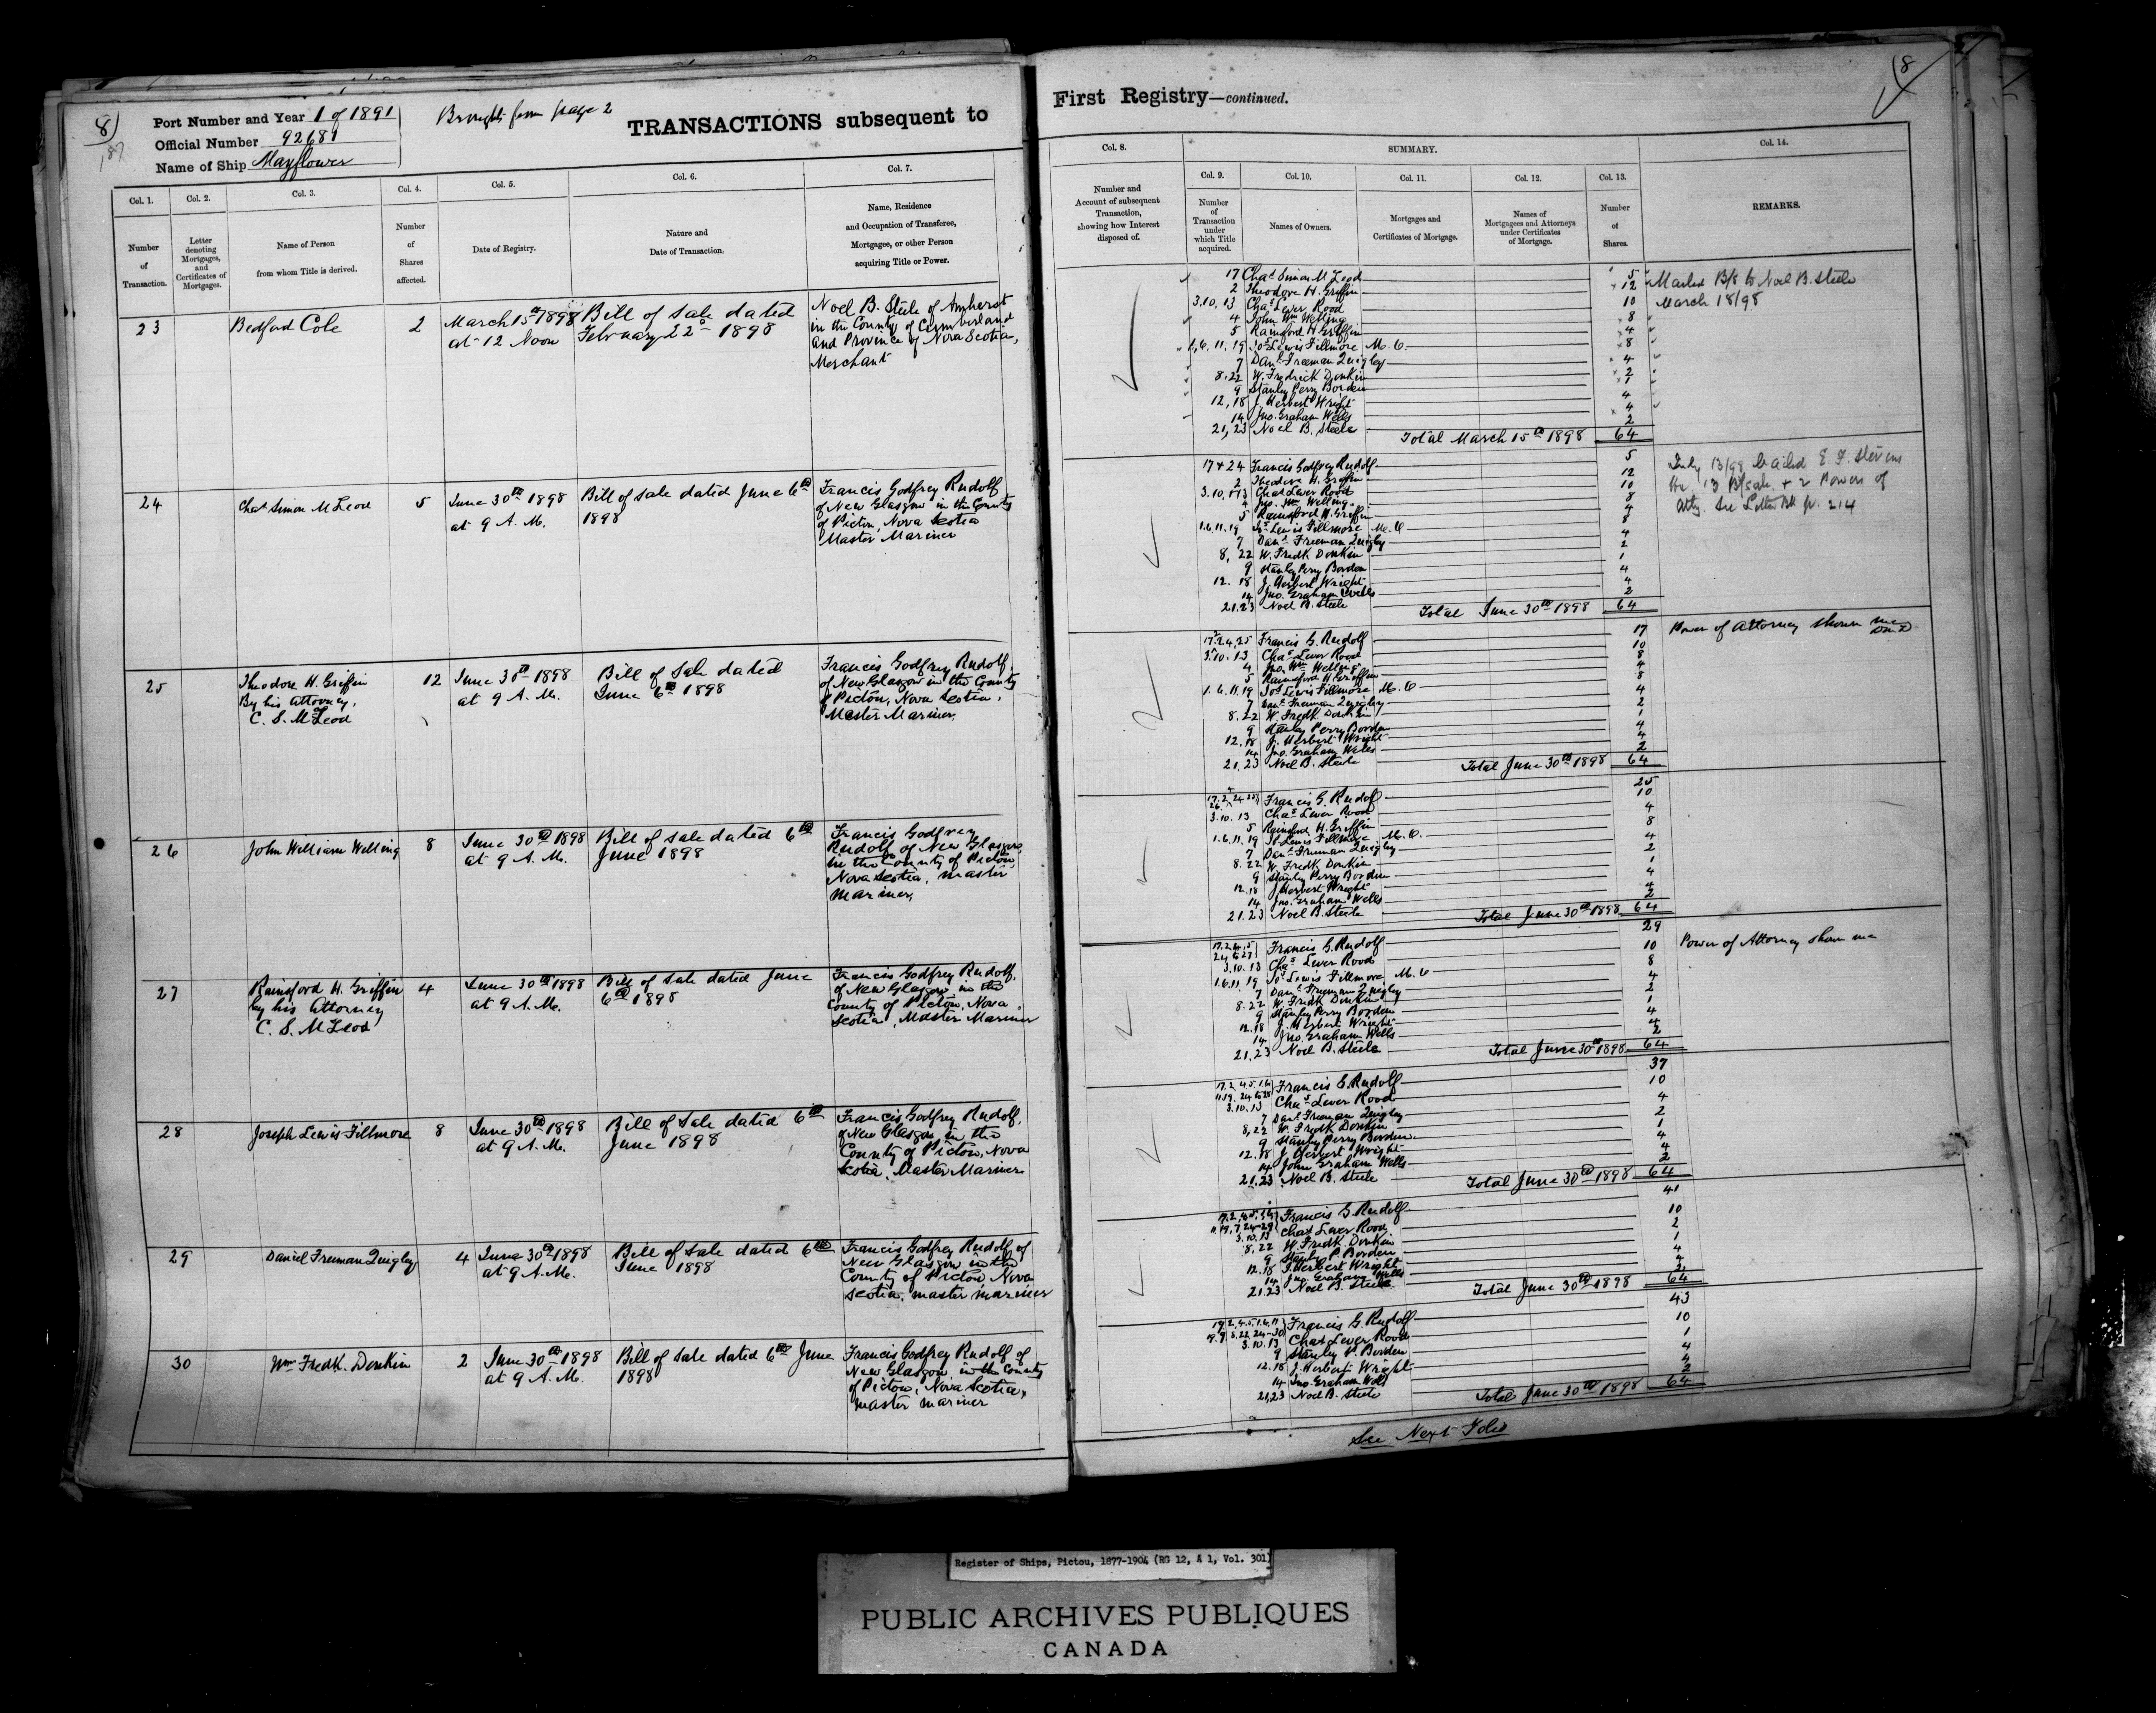 8)
187
Port Number and Year 1 of 1891
Official Number 92681
Name of Ship Mayflower
Brought from page 2
TRANSACTIONS subsequent to
Col. 1.
Number
of
Transaction.
Col. 2.
Letter
denoting
Mortgages,
and
Certificates of
Mortgages.
Col. 3.
Name of Person
from whom Title is derived.
Col. 4.
Number
of
Shares
affected.
Col. 5.
Date of Registry.
Col. 6.
Nature and
Date of Transaction.
Col. 7.
Name, Residence
and Occupation of Transferee,
Mortgagee, or other Person
acquiring Title or Power.
23
Bedford Cole
2
March 15th 1898
at 12 Noon
Bill of Sale dated
February 22d 1898
Noel B. Steele of Amherst
in the County of Cumberland
and Province of Nova Scotia,
Merchant
24
Chas Simon McLeod
5
June 30th 1898
at 9 A.M.
Bill of sale dated June 6th
1898
Francis Godfrey Rudolf
of New Glasgow in the County
of Pictou, Nova Scotia
Master Mariner
25
Theodore H. Griffin
By his Attorney,
C. S. McLeod
12
June 30th 1898
at 9 A.M.
Bill of Sale dated
June 6th 1898
Francis Godfrey Rudolf,
of New Glasgow in the County
of Pictou, Nova Scotia,
Master Mariner,
26
John William Welling
8
June 30th 1898
at 9 A.M.
Bill of sale dated 6th
June 1898
Francis Godfrey
Rudolf of New Glasgow
in the County of Pictou,
Nova Scotia, Master
Mariner,
27
Rainsford H. Griffin
by his Attorney
C. S. McLeod
4
June 30th 1898
at 9 A.M.
Bill of sale dated June
6th 1898
Francis Godfrey Rudolf,
of New Glasgow in the
County of Pictou, Nova
Scotia, Master Mariner
28
Joseph Lewis Fillmore
8
June 30th 1898
at 9 A.M.
Bill of Sale dated 6th
June 1898
Francis Godfrey Rudolf,
of New Glasgow in the
County of Pictou, Nova
Scotia, Master Mariner
29
Daniel Freeman Quigley
4
June 30th 1898
at 9 A.M.
Bill of Sale dated 6th
June 1898
Francis Godfrey Rudolf of
New Glasgow in the
County of Pictou Nova
Scotia, master mariner
30
Wm Fredk. Donkin
2
June 30th 1898
at 9 A.M.
Bill of Sale dated 6th June
1898
Francis Godfrey Rudolf of
New Glasgow, in the County
of Pictou, Nova Scotia,
Master Mariner
First Registry—continued.
8
Col. 8.
Number and
Account of subsequent
Transaction,
showing how Interest
disposed of.
SUMMARY.
Col. 9.
Number
of
Transaction
under
which Title
acquired.
Col. 10.
Names of Owners.
Col. 11.
Mortgages and
Certificates of Mortgage.
Col. 12.
Names of
Mortgagees and Attorneys
under Certificates
of Mortgage.
Col. 13.
Number
of
Shares.
Col. 14.
REMARKS.
17 Chas Simon McLeod 5
2 Theodore H. Griffin 12
3.10.13 Chas Lever Rood 10
4 John Wm Welling 8
5 Rainsford H Griffin 4
1,6,11,19 Jos Lewis Fillmore M.C. 8
7 Danl Freeman Quigley 4
8.22 W. Fredrick Donkin 2
9 Stanley Perry Borden 1
12,18 J Herbert Wright 4
14 Jno. Graham Wells 4
21,23 Noel B. Steele 2
Total March 15th 1898 64
Mailed B/S to Noel B. Steele
March 18/98
17 + 24 Francis Godfrey Rudolf 5
2 Theodore H. Griffin 12
3.10, 13 Chas Lever Rood 10
4 Jno. Wm Welling 8
5 Rainsford H. Griffin 4
1.6.11.19 Jos Lewis Fillmore M.C 8
7 Danl Freeman Quigley 4
8, 22 W. Fredk Donkin 2
9 Stanley Perry Borden 1
12. 18 J. Herbert Wright 4
14 Jno. Graham Wells 4
21.23 Noel B. Steele 2
Total June 30th 1898 64
July 13/98 Mailed E. F. Stevens
13 B/Sale + 2 Powers of
Atty. See Letter Bk p. 214
17.2.24,25 Francis G. Rudolf 17
3.10.13 Chas Lever Rood 10
4 Jno. Wm Welling 8
5 Rainsford H Griffin 4
1.6.11.19 Jos Lewis Fillmore M.C 8
7 Danl Freeman Quigley 4
8.22 W. Fredk Donkin 2
9 Stanley Perry Borden 1
12.18 J. Herbert Wright 4
14 Jno. Graham Wells 4
21.23 Noel B. Steele 2
Total June 30th 1898 64
Power of Attorney shown me
17.2.4 24 25 26 Francis G. Rudolf 25
3.10.13 Chas Lever Rood 10
5 Rainsford H. Griffin 4
1.6.11.19 Js Lewis Fillmore M.C. 8
7 Danl Freeman Quigley 4
8.22 W. Fredk Donkin 2
9 Stanley Perry Borden 1
12.18 J Herbert Wright 4
14 Jno. Graham Wells 4
21.23 Noel B. Steele 2
Total June 30th 1898 64
17.2.4.5 24 to 27 Francis G. Rudolf 29
3.10.13 Chas Lever Rood 10
1.6.11.19 Jos Lewis Fillmore M.C 8
7 Danl Freeman Quigley 4
8.22 W. Fredk Donkin 2
9 Stanley Perry Borden 1
12.18 J. Herbert Wright 4
14 Jno. Graham Wells 4
21,23 Noel B. Steele 2
Total June 30th 1898 64
Power of Attorney shown me
17.2.4.5.1.6 11.19. 24 to 28 Francis G. Rudolf 37
3.10.13 Chas Lever Rood 10
7 Danl Freeman Quigley 4
8,22 W. Fredk Donkin 2
9 Stanley Perry Borden 1
12.18 J Herbert Wright 4
14 John Graham Wells 4
21.23 Noel B. Steele 2
Total June 30th 1898 64
17.2.4.5.1.6 11.19.7 24-29 Francis G Rudolf 41
3.10.13 Chas Lever Rood 10
8.22 W. Fredk Donkin 2
9 Stanley P. Borden 1
12.18 J. Herbert Wright 4
14 Jno. Graham Wells 4
21.23 Noel B. Steele 2
Total June 30th 1898 64
17.2.4.5.1.6.11 19.7.8.22 24-30 Francis G. Rudolf 43
3.10.13 Chas Lever Rood 10
9 Stanley P. Borden 1
12.18 J. Herbert Wright 4
14 Jno. Graham Wells 4
21,23 Noel B. Steele 2
Total June 30th 1898 64
See Next Folio
Register of Ships, Pictou, 1877-1904 (RG 12, A 1, Vol. 301)
PUBLIC ARCHIVES PUBLIQUES
CANADA